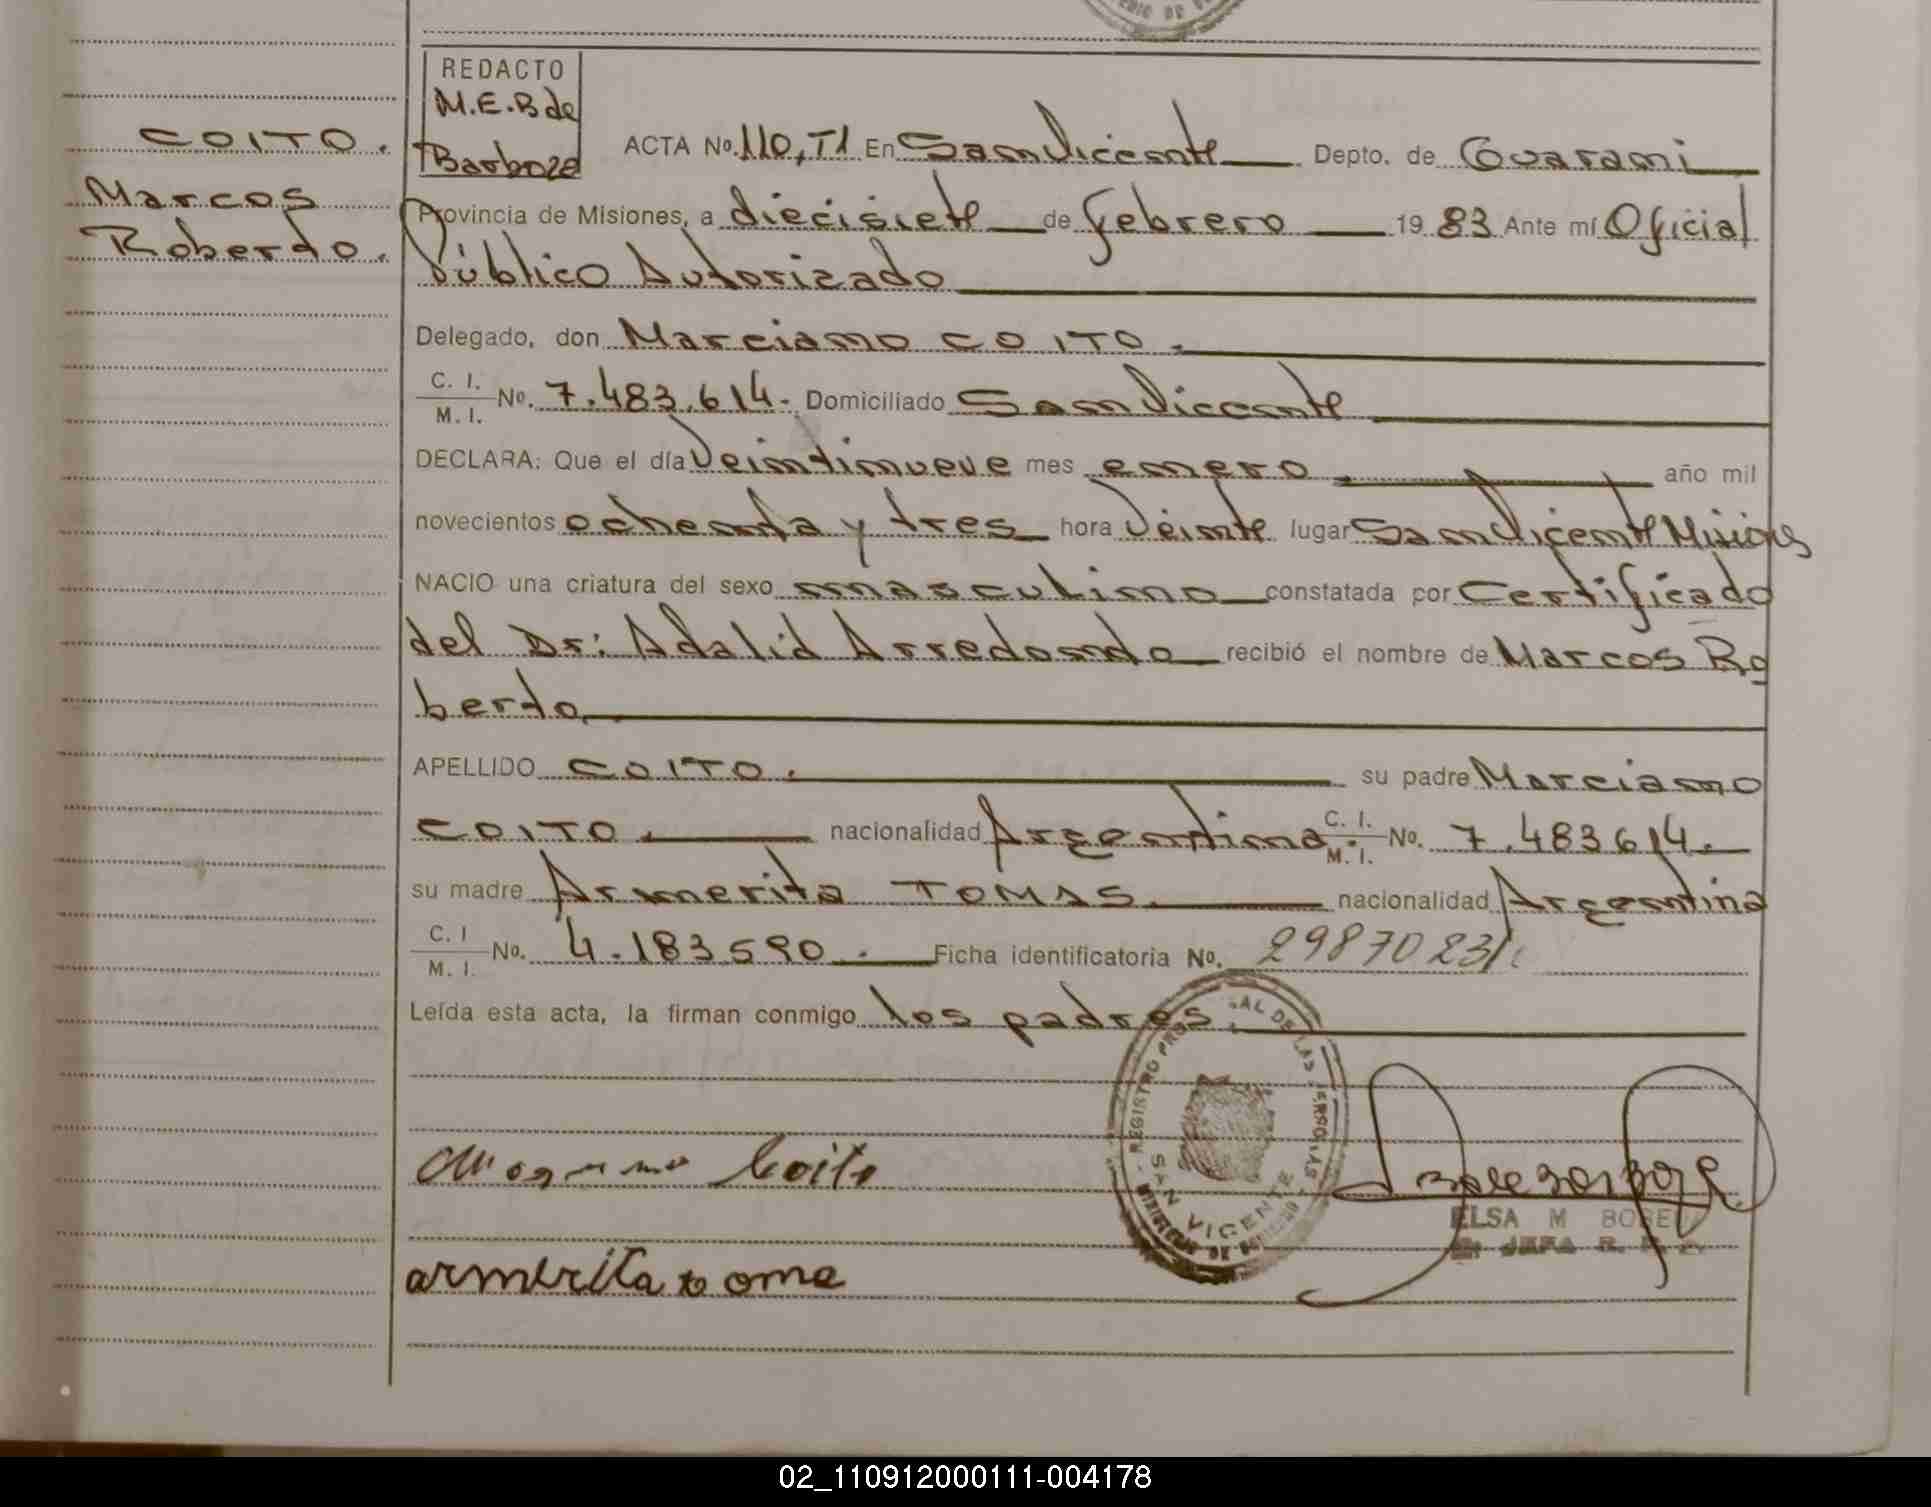 REDACTO
M.E.B de
Barboza
COITO.
Marcos
Roberto.
ACTA Nº 110, T1 En San Vicente Depto. de Guarani
Provincia de Misiones, a diecisiete de febrero 1983 Ante mí Oficial
Público Autorizado
Delegado, don Marciano COITO.
C. I. / M. I. Nº. 7.483.614. Domiciliado San Vicente
DECLARA: Que el día Veintinueve mes enero año mil
novecientos ochenta y tres hora Veinte lugar San Vicente Misiones
NACIO una criatura del sexo masculino constatada por Certificado
del Dr: Adalid Arredondo recibió el nombre de Marcos Ro
berto
APELLIDO COITO. su padre Marciano
COITO. nacionalidad Argentina. C. I. / M. I. Nº. 7.483614.
su madre Armerita TOMAS. nacionalidad Argentina
C. I / M. I. Nº. 4.183590. Ficha identificatoria Nº. 29870231
Leída esta acta, la firman conmigo los padres
REGISTRO DE LAS PERSONAS
SAN VICENTE
Coito
armerita toma
ELSA M
JEFA R. P.
02_110912000111-004178